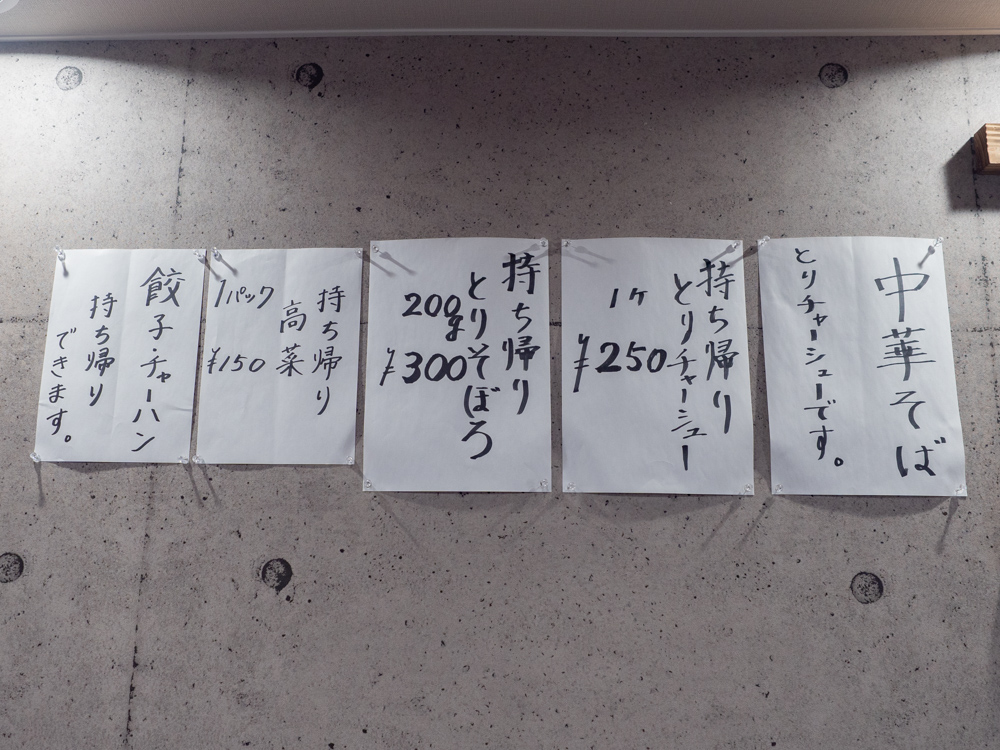 中華そば
とりチャーシューです。
持ち帰り
とりチャーシュー
1ケ
¥250
持ち帰り
とりそぼろ
200g
¥300
持ち帰り
高菜
1パック
¥150
餃子・チャーハン
持ち帰り
できます。